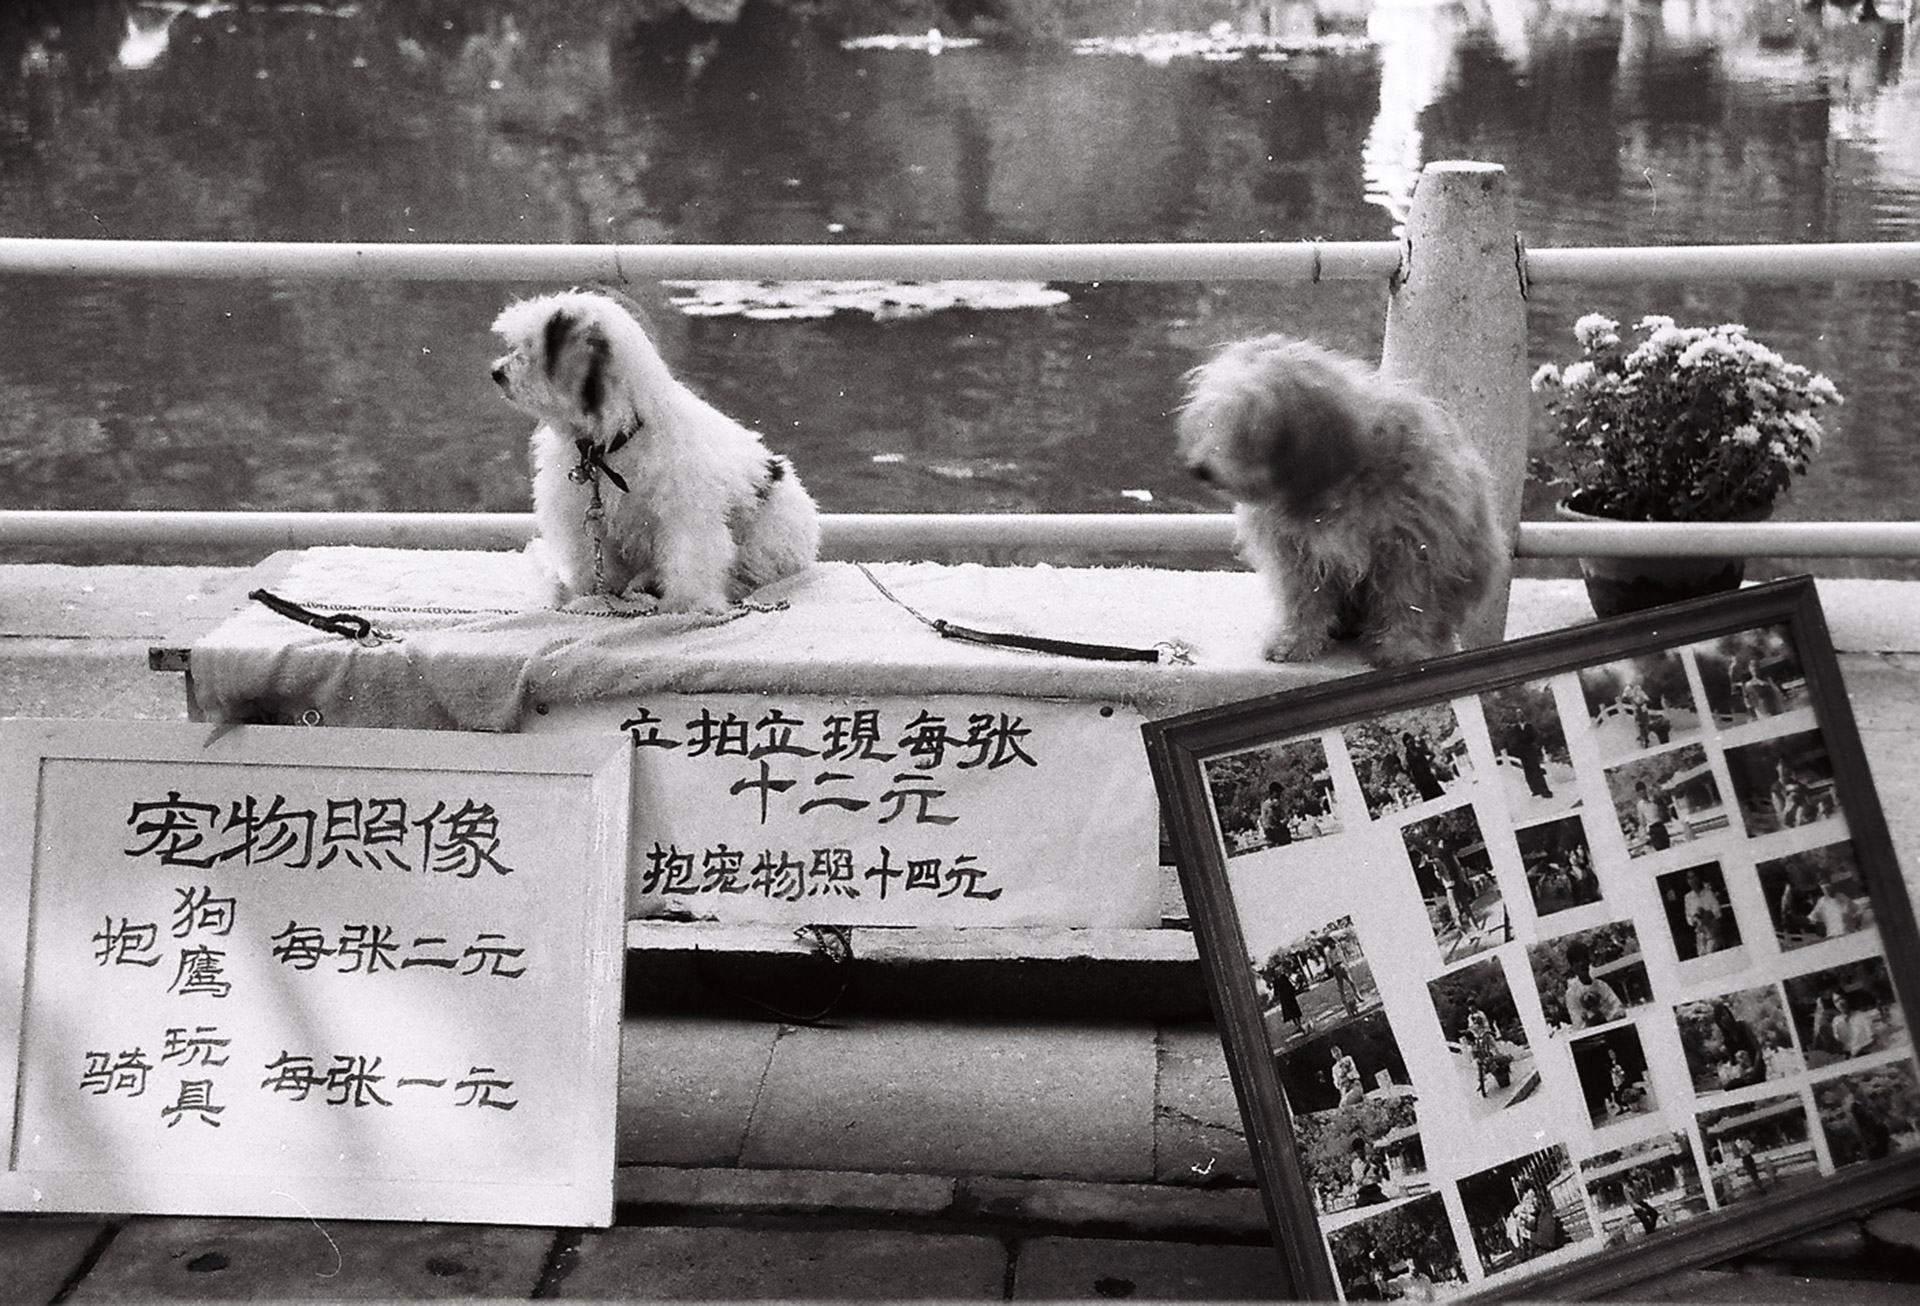 宠物照像
抱狗鹰 每张二元
骑玩具 每张一元
立拍立現每张
十二元
抱宠物照十四元